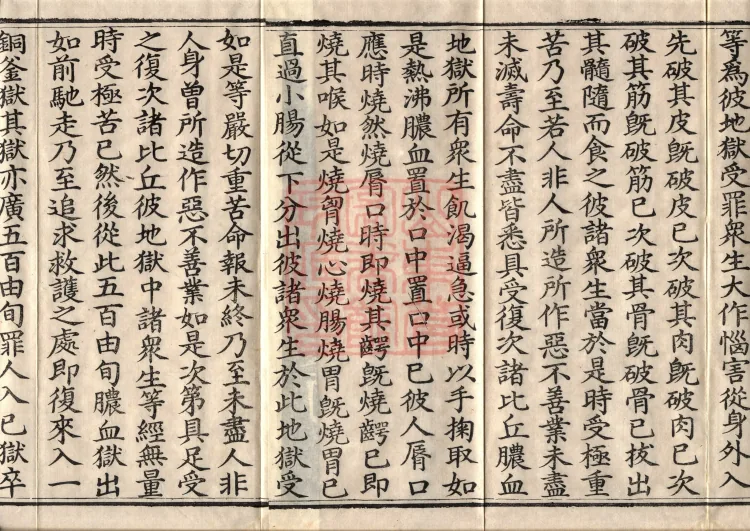 等為彼地獄受罪衆生大作惱害從身外入
先破其皮旣破皮已次破其肉旣破肉已次
破其筋旣破筋已次破其骨旣破骨已拔出
其髓隨而食之彼諸衆生當於是時受極重
苦乃至若人非人所造所作惡不善業未盡
未滅壽命不盡皆悉具受復次諸比丘膿血
地獄所有衆生飢渴逼急或時以手掬取如
是熱沸膿血置於口中置口中已彼人脣口
應時燒然燒脣口時即燒其齶旣燒齶已即
燒其喉如是燒胷燒心燒腸燒胃旣燒胃已
直過小腸從下分出彼諸衆生於此地獄受
如是等嚴切重苦命報未終乃至未盡人非
人身曾所造作惡不善業如是次第具足受
之復次諸比丘彼地獄中諸衆生等經無量
時受極苦已然後從此五百由旬膿血獄出
如前馳走乃至追求救護之處即復來入一
銅釜獄其獄亦廣五百由旬罪人入已獄卒